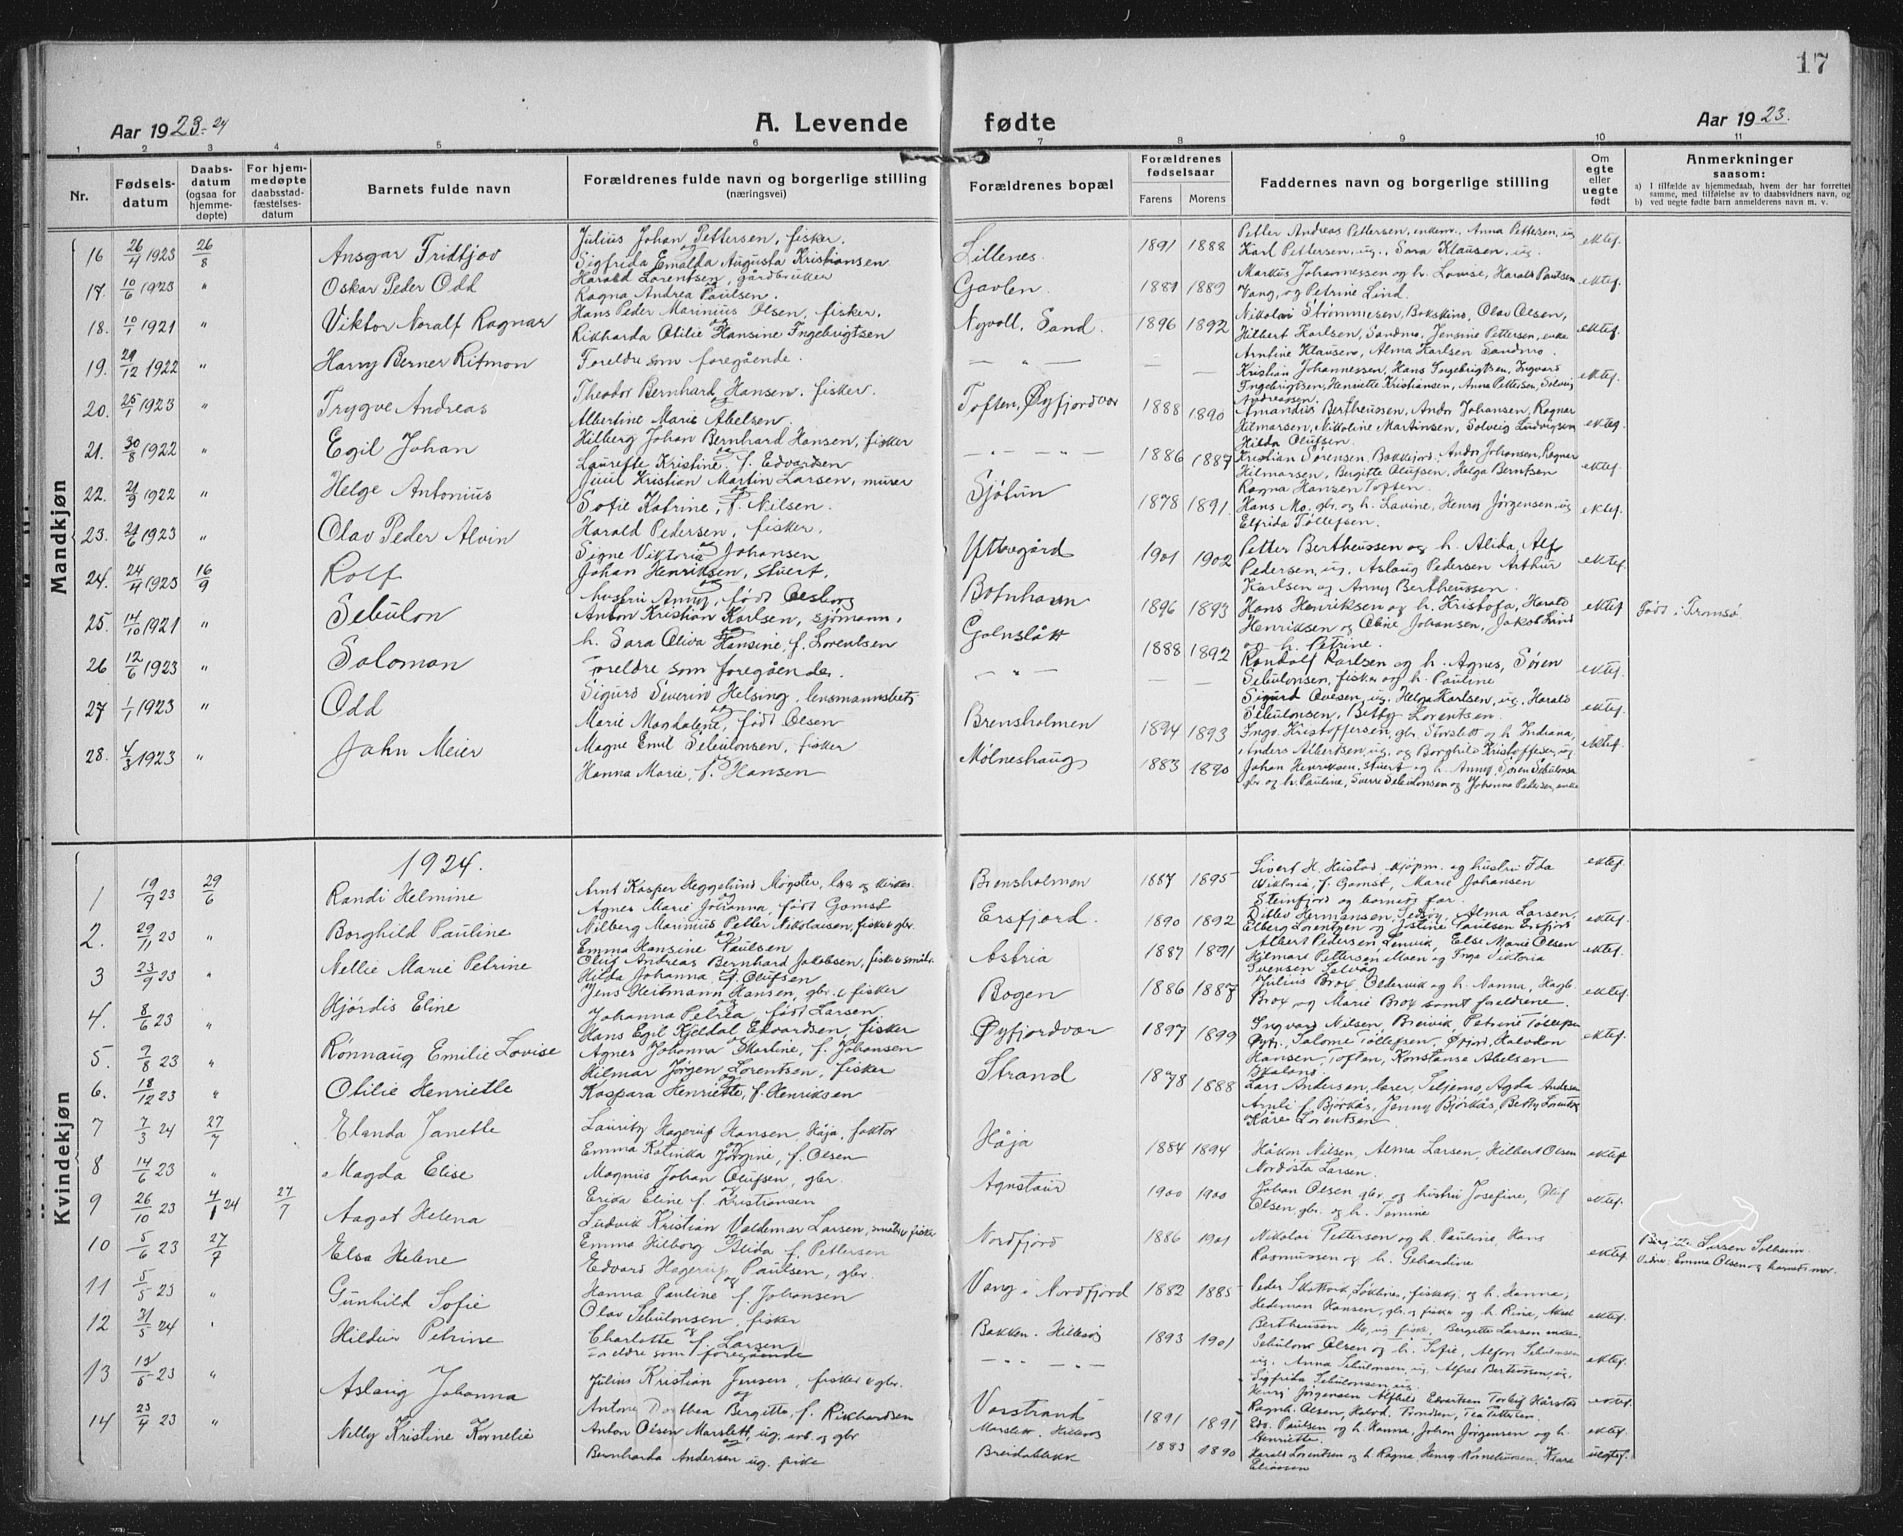 17
Aar 1923-24 A. Levende fødte Aar 1923.
1 2 3 4 5 6 7 8 9 10 11
Nr. Fødsels-datum Daabs-datum (ogsaa for hjemme-døpte) For hjem-medøpte daabsstad-fæstelses-datum Barnets fulde navn Forældrenes fulde navn og borgerlige stilling (næringsvei) Forældrenes bopæl Forældrenes fødselsaar Farens Morens Faddernes navn og borgerlige stilling Om egte eller uegte født Anmerkninger saasom:
a) I tilfælde av hjemmedaab, hvem der har forrettet samme, med tilføielse av to daabsvidners navn, og
b) ved uegte fødte barn anmelderens navn m. v.
Mandkjøn
16 26/4 1923 26/8 Ansgar Fridtjov Julius Johan Pettersen, fisker. og Sigfrida Emalda Augusta Kristiansen Lillenes. 1891 1888 Petter Andreas Pettersen, enkem., Anna Pettersen, ug. Karl Pettersen, ug., Sara Klausen, ug. ektef.
17. 10/6 1923 " Oskar Peder Odd Harald Lorentsen, gårdbruker Ragna Andrea Paulsen. Gavlen. 1881 1889 Markus Johannessen og h. Lovise, Harald Paulsen Vang, og Petrine Lind. ektef.
18. 10/1 1921 " Viktor Noralf Ragnar Hans Peder Marinius Olsen, fisker. og Rikharda Otilie Hansine Ingebrigtsen Nyvoll, Sand. 1896 1892 Nikolai Strømmesen, Bakskind, Olav Olsen, Hilbert Karlsen, Sandmo, Jensine Pettersen, enke Arntine Klausen, Alma Karlsen Sandmo. ektef.
19. 29/12 1922 " Harry Berner Ritmon Foreldre som foregående. — " — Kristian Johannessen, Hans Ingebrigtsen, Ingvard Ingebrigtsen, Henriette Kristiansen, Anna Pettersen, Solveig Andreassen. ektef.
20. 25/1 1923 " Trygve Andreas Theodor Bernhard Hansen, fisker. og Albertine Marie Abelsen. Toften, Øyfjordvær 1888 1890 Amandus Bertheussen, Andor Johansen, Ragnar Hilmarsen, Nikoline Martinsen, Solveig Ludvigsen Hilda Olufsen. ektef
21. 30/8 1922 " Egil Johan Hilberg Johan Bernhard Hansen, fisker og Laurette Kristine, f. Edvardsen — — — 1886 1887 Kristian Sørensen, Bakkejord, Andor Johansen, Ragnar Hilmarsen, Bergitte Olufsen, Helga Berntsen Ragna Hansen Toften. ektef.
22. 21/9 1922 " Helge Antonius Juul Kristian Martin Larsen, murer og Sofie Katrine, f. Nilsen. Sjøtun 1878 1891. Hans Mo, gbr. og h. Lavine, Henry Jørgensen, ug Elfrida Tollefsen. ektef.
23. 21/6 1923 " Olav Peder Alvin Harald Pedersen, fisker. og Signe Viktoria Johansen Yttregård 1901 1902 Petter Bertheussen og h. Alida, Alf Pedersen, ug, Aslaug Pedersen Arthur Karlsen og Anny Bertheussen. ektef.
24. 24/4 1923 16/9 Rolf Johan Henriksen, stuert. og hustru Anny, født Olsborg Botnhavn 1896 1893 Hans Henriksen og h. Kristofa, Harald Henriksen og Oline Johansen, Jakob Lind og h. Petrine. ektef Født i Tromsø.
25. 14/10 1921 " Sebulon Anton Kristian Karlsen, sjømann, h. Sara Oliva Hansine, f. Lorentsen Galnslått 1888 1892 Randolf Karlsen og h. Agnes, Søren Sebulonsen, fisker og h. Pauline ektef.
26 12/6 1923 " Saloman Foreldre som foregående. — " — — — Sigurd Ovesen, ug, Helga Karlsen, ug, Harald Sebulonsen, Betty Lorentsen. ektef.
27 1/1 1923 " Odd Sigurd Severin Helsing, lensmannsbetj. og Marie Magdalene, født Olsen Brensholmen 1894 1893 Ingv. Kristoffersen, gbr. Storslett og h. Indiana, Anders Albertsen, ug. og Borghild Kristoffersen, ug ektef.
28. 4/3 1923 " John Meier Magne Emil Sebulonsen, fisker og Hanna Marie, f. Hansen Mølneshaug 1883 1890 Johan Henriksen, stuert og h. Anny, Søren Sebulonsen gbr og h. Pauline, Sverre Sebulonsen og Johanna Pedersen, enke ektef.
Kvindekjøn
1924.
1 19/7 23 29/6 Randi Helmine Arnt Kasper Heggelund Møgster, lærer og kirkes. og Agnes Marie Johanna, født Gamst Brensholmen 1887 1895 Sivert H. Hustad, kjøpm. og hustru Ida Viktoria, f. Gamst, Marie Johansen Steinfjord og barnets far. ektef.
2. 29/11 23 " Borghild Pauline Nilberg Marinius Petter Nikolaisen, fisker & gbr. og Emma Hansine Paulsen Ersfjord. 1890 1892 Ditlev Hermansen, Sessøy, Alma Larsen, Elberg Lorentzen og Jostine Paulsen Ersfjord ektef.
3 23/9 23 " Nellie Marie Petrine Oluf Andreas Bernhard Jakobsen, fisker & småbr. Hilda Johanna f. Olufsen Astria 1887 1891 Albert Pedersen, Lenvik, Else Marie Olsen Hilmar Pettersen Moen og Inga Viktoria Svensen Selvåg ektef.
4. 8/6 23 " Hjördis Eline Jens Heitmann Hansen, gbr. & fisker og Johanna Petrea, født Larsen Bogen 1886 1887 Julius Brox, Oldervik og h. Nanna, Hagb. Brox og Marie Brox samt foreldrene. ektef.
5. 9/8 23 " Rønnaug Emilie Lovise Hans Egil Kjeldal Edvardsen, fisker og Agnes Johanna Martine, f. Johansen Øyfjordvær 1897 1899 Ingvard Nilsen, Breivik, Petrine Tollefsen Øyfj., Salome Tollefsen, Øifj., Halvdon Hansen Toften, Konstanse Abelsen ektef.
6. 18/12 23 " Otilie Henriette Hilmar Jørgen Lorentsen, fisker og Kaspara Henriette, f. Henriksen Strand 1878 1888 Lars Andersen, lærer, Seljemo, Agda Andersen Arnli f. Bjørkås, Jenny Bjørkås, Betty Lorentsen Kåre Lorentsen ektef.
7 7/3 24 27/7 Elanda Janette Lauritz Hagerup Hansen, Håja, faktor og Emma Katinka Jørgine, f. Olsen Håja 1884 1894 Håkon Nilsen, Alma Larsen, Hilbert Olsen Larsen. ektef
8 14/6 23 " Magda Elise Magnus Johan Olufsen, gbr. og Erida Eline f. Kristiansen 1900 1900 Johan Olsen gbr. og hustru Josefine, Oluf Olsen gbr. og h. Tomine ektef.
9 26/10 23 4/1 24 27/7 Aagot Helena Ludvik Kristian Valdemar Larsen, småbr & fisker og Emma Hilborg Alida f. Pettersen Nordfjord 1886 1901 Nikolai Pettersen og h. Pauline, Hans Rasmussen og h. Gehardine ektef. Birgitte Larsen Solheim. Vidner: Emma Olsen og barnets mor.
10 5/6 23 27/7 Elsa Helene Edvard Hagerup Paulsen, gbr. og Hanna Pauline f. Johansen Vang i Nordfjord 1882 1885 Peder h. Hanna, Hedeman Hansen, gbr. & fisker og h. Rina, Aksel Bertheusen Mo, ug. fisk. Bergitte Larsen enke. ektef.
11 5/5 23 " Gunhild Sofie Olav Sebulonsen, fisker og Charlotte f. Larsen Bakken. Hillesø 1893 1901 Sebulon Olsen og h. Sofie, Alfon Sebulonsen ug. Anna Sebulonsen, ug. Alfred Bertiussen, ug. Sigfrida Sebulonsen, ug. ektef.
12 31/5 24 " Hildur Petrine Foreldre som foregående — " —
13 12/5 23 " Aslaug Johanna Julius Kristian Jensen, fisker & gbr. og Antone Dorthea Bergitte, f. Rikhardsen Varstrand 1891 1891 Jørgensen Torleif Hårstad Ragnh. Olsen, Halvd. Trondsen, Tea Pettersen. ektef.
14 23/7 23 " Nelly Kristine Kornelie Anton Olsen Marslett, ug. arb. og gbr og Bernharda Andersen ug. pike Marslett. Hillesø Breidablikk 1883 1890 Edv. Paulsen og h. Hanna, Johan Jørgensen og h. Henriette. Harald Lorentsen og h. Ragna, Henry Korneliussen, Klara Eliassen ektef. uegtef.